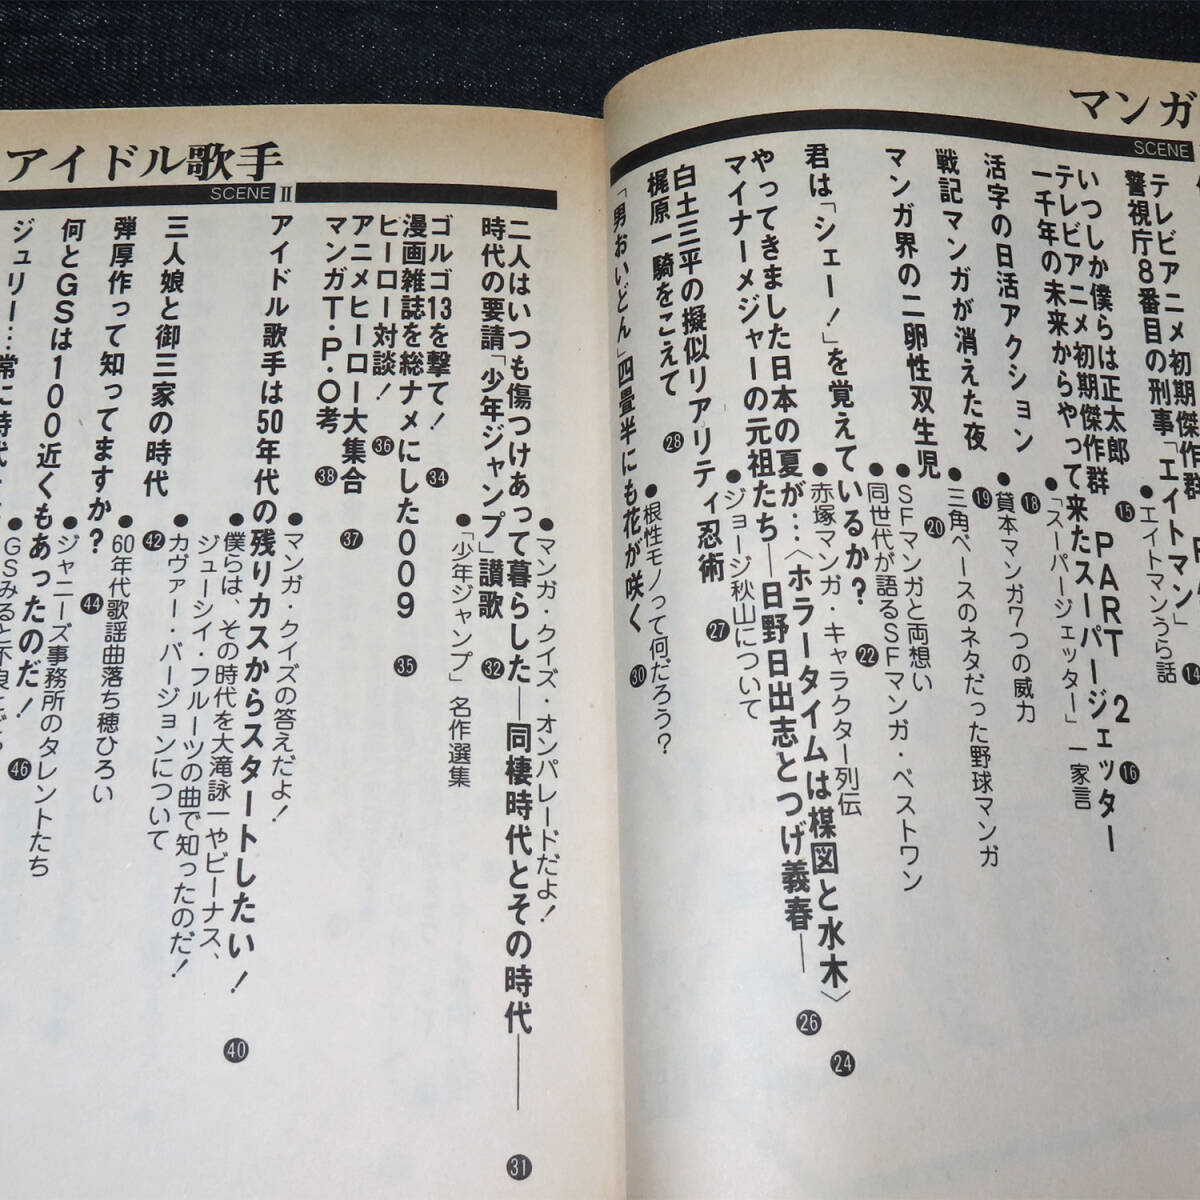 マンガ
SCENE
テレビアニメ初期傑作群
警視庁8番目の刑事「エイトマン」 14
●エイトマンうら話
いつしか僕らは正太郎 15
テレビアニメ初期傑作群 PART 2 16
一千年の未来からやって来たスーパージェッター
●「スーパージェッター」一家言
活字の日活アクション 18
●貸本マンガ7つの威力
戦記マンガが消えた夜 19
●三角ベースのネタだった野球マンガ
マンガ界の二卵性双生児 20
●SFマンガと両想い
●同世代が語るSFマンガ・ベストワン
君は「シェー!」を覚えているか? 22
●赤塚マンガ・キャラクター列伝
やってきました日本の夏が…〈ホラータイムは楳図と水木〉 24
マイナーメジャーの元祖たち―日野日出志とつげ義春― 26
●ジョージ秋山について
白土三平の擬似リアリティ忍術 27
梶原一騎をこえて 28
●根性モノって何だろう?
「男おいどん」四畳半にも花が咲く 30
●マンガ・クイズ・オンパレードだよ!
二人はいつも傷つけあって暮らした―同棲時代とその時代― 31
時代の要請「少年ジャンプ」讃歌 32
●「少年ジャンプ」名作選集
ゴルゴ13を撃て! 34
漫画雑誌を総ナメにした009 35
ヒーロー対談! 36
アニメヒーロー大集合 37
マンガT・P・O考 38
●マンガ・クイズの答えだよ!
アイドル歌手
SCENE II
アイドル歌手は50年代の残りカスからスタートしたい! 40
●僕らは、その時代を大滝詠一やビーナス、
ジューシイ・フルーツの曲で知ったのだ!
●カヴァー・バージョンについて
三人娘と御三家の時代 42
●60年代歌謡曲落ち穂ひろい
弾厚作って知ってますか? 44
●ジャニーズ事務所のタレントたち
何とGSは100近くもあったのだ! 46
●GSみると不良
ジュリー…常に時代